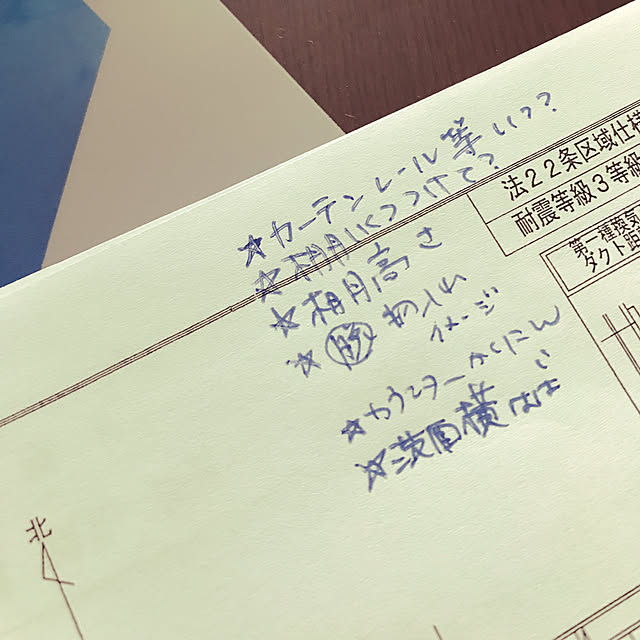 ☆カーテンレール等いつ?
☆棚いくつつけて?
☆棚高さ
☆ 物入れ
イメージ
☆カウンターかくにん
☆洗面横はば
法22条区域仕様
耐震等級3等級
第一種換気
ダクト
北